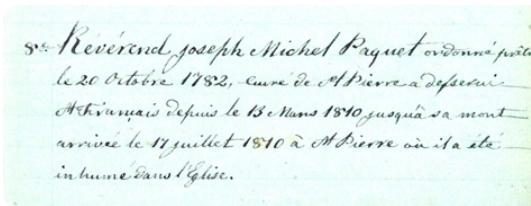 8e Révérend Joseph Michel Paquet ordonné prêtre
le 20 Octobre 1782, curé de St Pierre a desservi
St François depuis le 13 Mars 1810 jusqu'à sa mort
arrivée le 17 juillet 1810 à St Pierre où il a été
inhumé dans l'Eglise.